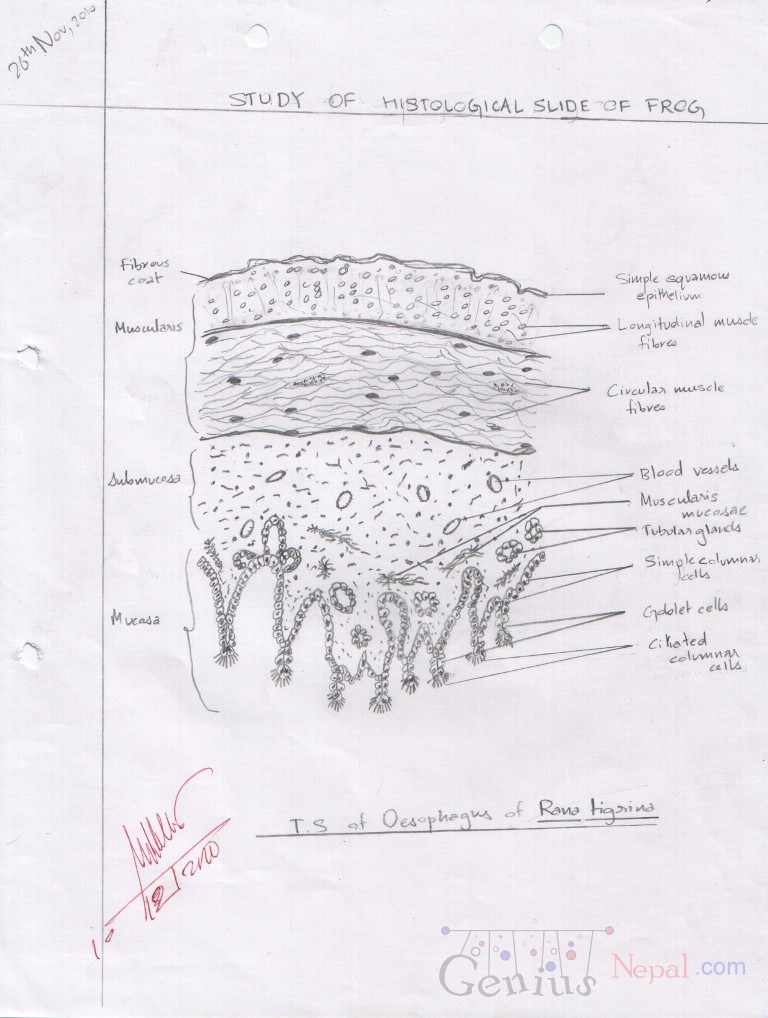 26th Nov, 2010
STUDY OF HISTOLOGICAL SLIDE OF FROG
Fibrous
coat
Muscularis
Submucosa
Mucosa
Simple squamous
epithelium
Longitudinal muscle
fibres
Circular muscle
fibres
Blood vessels
Muscularis
mucosae
Tubular glands
Simple columnar
cells
Goblet cells
Ciliated
columnar
cells
T.S of Oesophagus of Rana tigrina
Genius Nepal.com